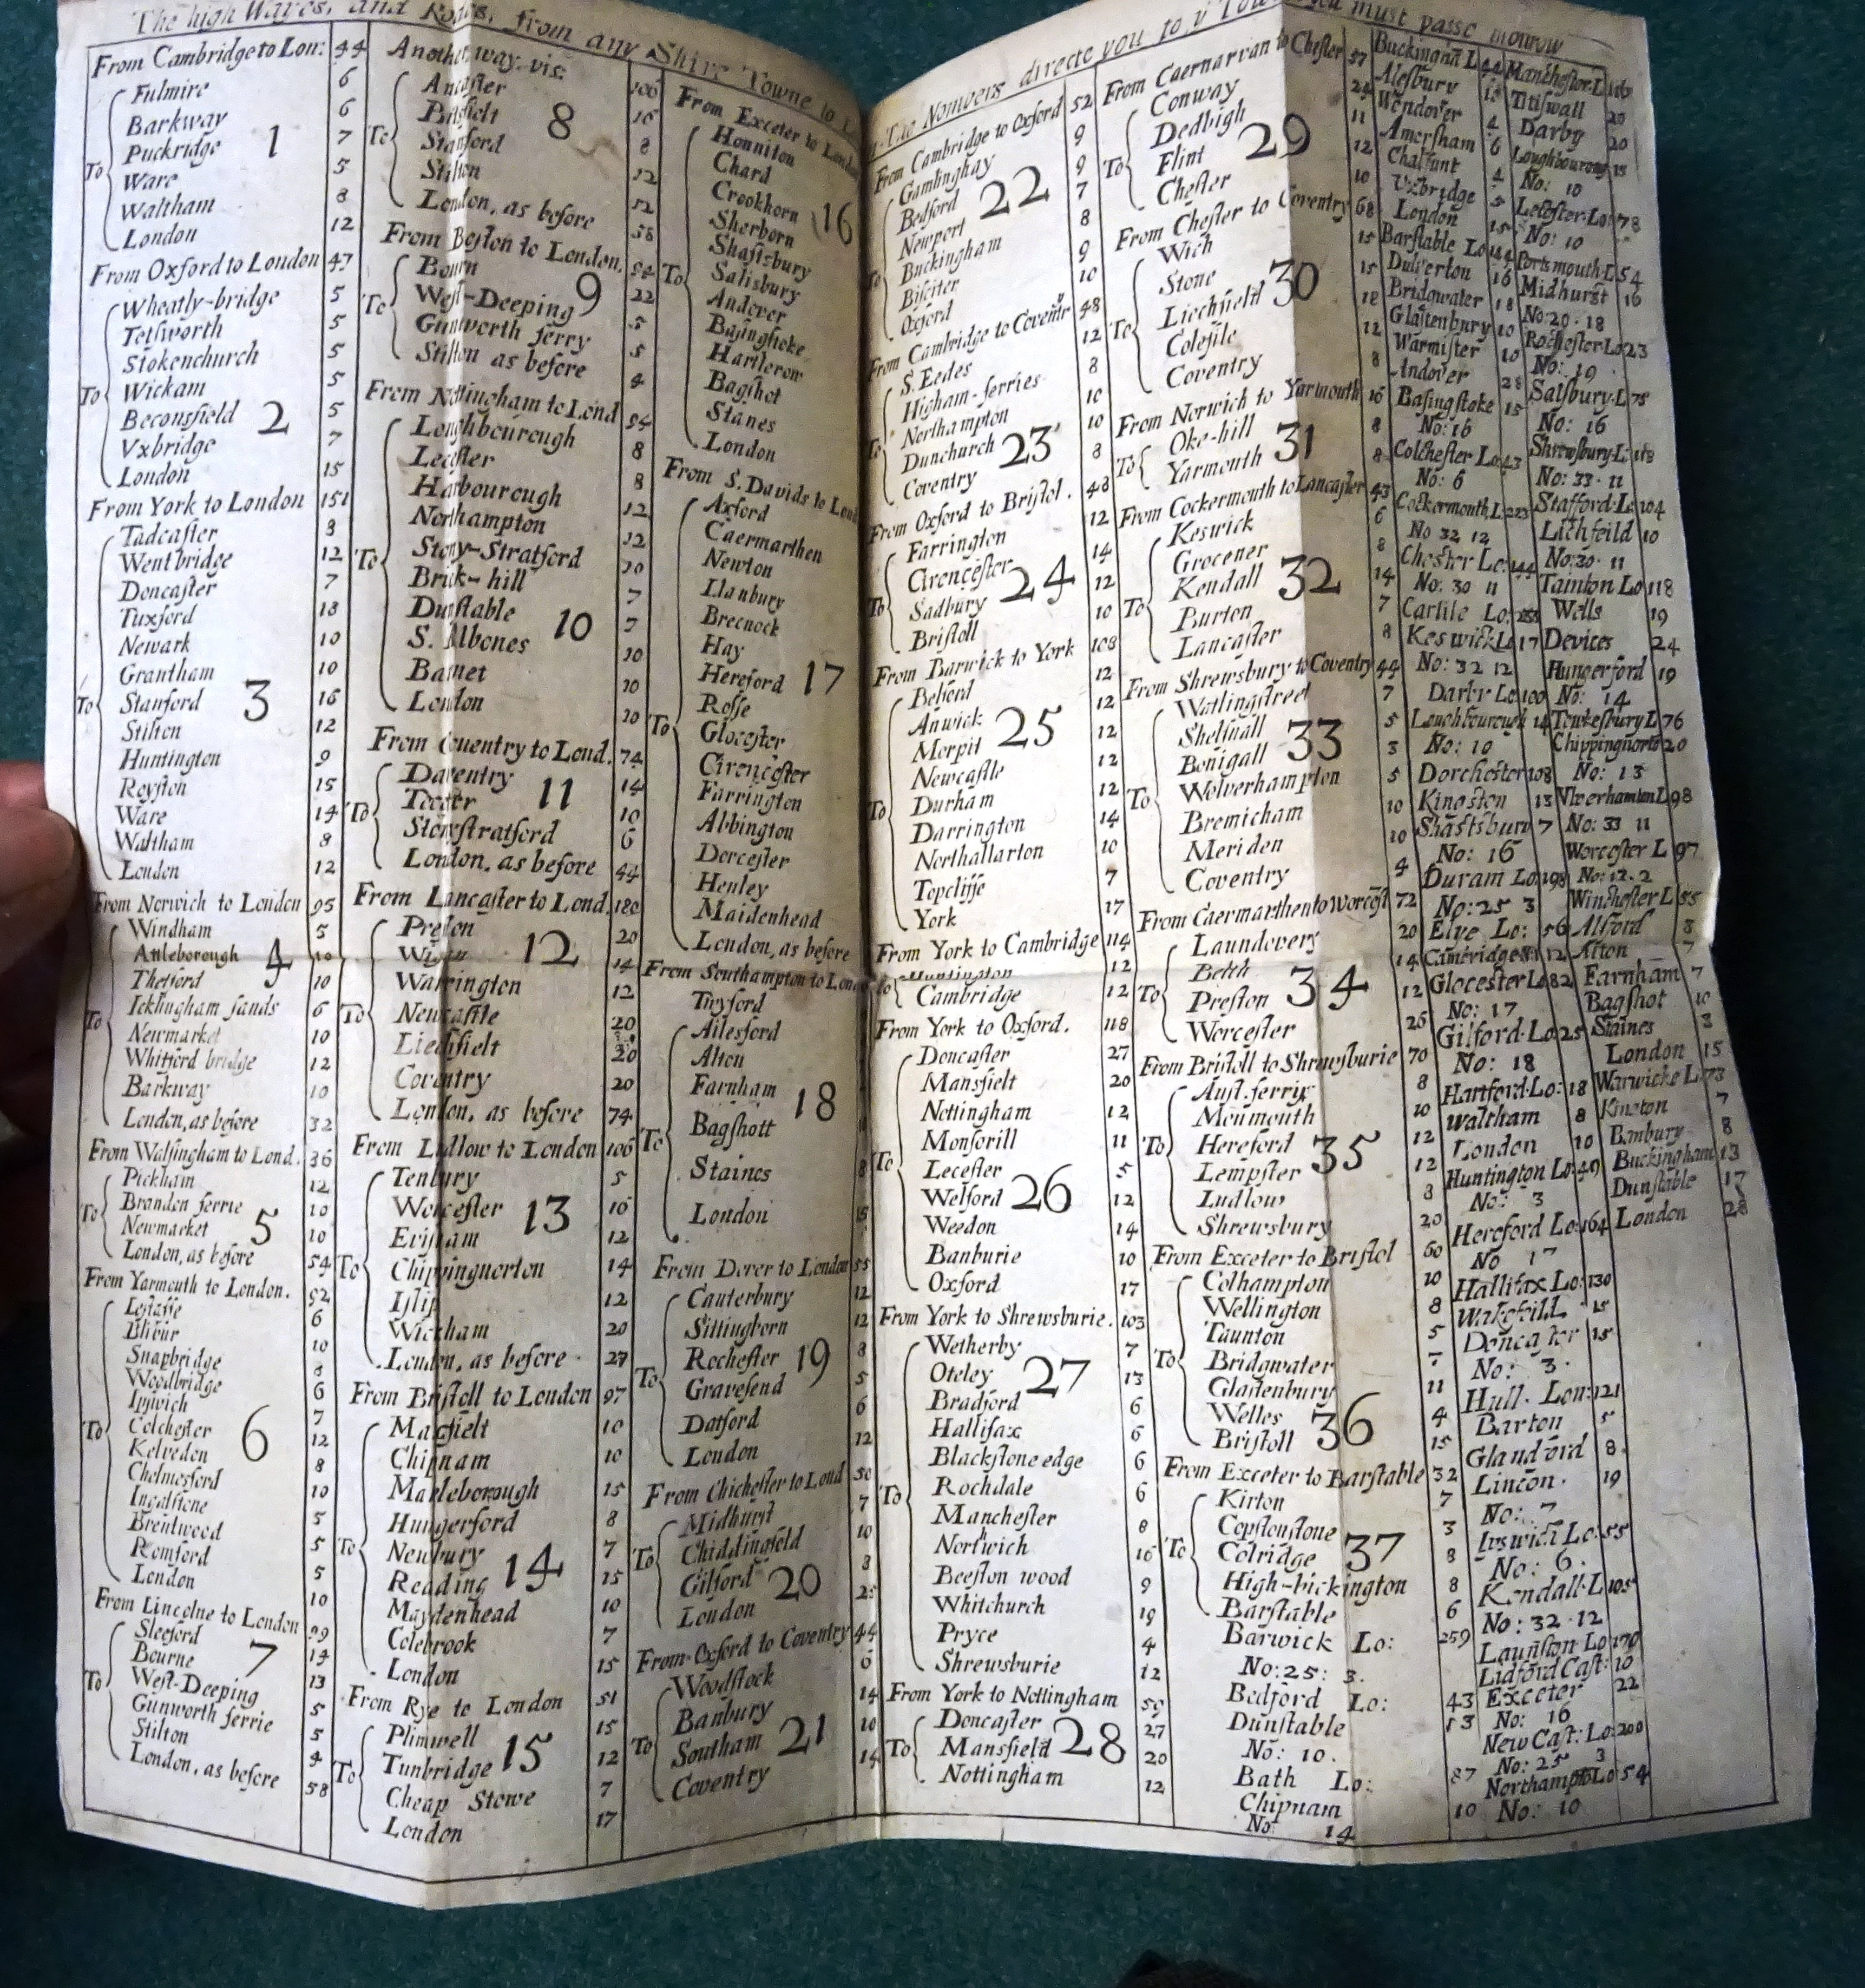 The high Wayes, and Roads, from any Shire Towne to
From Cambridge to Lon: 44
Fulmire 6
Barkway 6
Puckridge 7
To Ware 5
Waltham 8
London 12
1
From Oxford to London 47
Wheatly-bridge 5
Tetsworth 5
Stokenchurch 5
To Wickam 5
Beconsfield 5
Vxbridge 7
London 15
2
From York to London 151
Tadcaster 8
Wentbridge 12
Doncaster 7
Tuxford 18
Newark 10
Grantham 10
To Stanford 16
Stilton 12
Huntington 9
Royston 15
Ware 14
Waltham 8
London 12
3
From Norwich to London 95
Windham 5
Attleborough 10
Thetford 10
To Icklingham sands 6
Newmarket 10
Whitford bridge 12
Barkway 10
London, as before 32
4
From Walsingham to Lond. 86
Pickham 12
To Brandon ferrie 10
Newmarket 10
London, as before 54
5
From Yarmouth to London. 92
6
Blibur 10
Snapbridge 8
Woodbridge 6
Ipswich 7
To Colchester 12
Kelvedon 8
Chelmesford 10
Ingalstone 5
Brentwood 5
Romford 5
London 10
6
From Lincolne to London 99
Sleeford 14
Bourne 13
To West-Deeping 5
Gunworth ferrie 5
Stilton 4
London, as before 58
7
Another way. vis: 106
Ancaster 16
8
To Stanford 12
Stilton 12
London, as before 58
8
From Boston to London. 94
Bourn 22
To West-Deeping 5
Gunworth ferry 5
Stilton as before 4
9
From Nottingham to Lond 94
Loughbourough 8
Lecester 8
Harbourough 12
Northampton 12
To Stony-Stratford 10
Brick-hill 7
Dunstable 7
S. Albones 10
Barnet 10
London 10
10
From Couentry to Lond. 74
Daventry 14
To Tocter 10
Stonystratford 6
London, as before 44
11
From Lancaster to Lond. 186
Preston 20
Wigan 14
Warrington 12
To Newcastle 20
Liechfielt 20
Coventry 20
London, as before 74
12
From Ludlow to London 106
Tenbury 5
Worcester 16
Evisham 12
To Chippingnorton 14
Islip 12
Wickham 20
London, as before 27
13
From Bristoll to London 97
Maxfielt 10
Chipnam 10
Marleborough 15
Hungerford 8
To Newbury 7
Reading 15
Maydenhead 10
Colebrook 7
London 15
14
From Rye to London 51
Plimwell 15
To Tunbridge 12
Cheap Stowe 7
London 17
15
From Exceter to
Honniton
Chard
Crookhorn
Sherborn
Shaftsbury
To Salisbury
Andover
Basingstoke
Hartlerow
Bagshot
Stanes
London
16
From S. Davids to
Axford
Caermarthen
Newton
Llanbury
Brecnock
Hay
Hereford
Rosse
To Glocester
Cirencester
Farrington
Abbington
Dorcester
Henley
Maidenhead
London, as before
17
From Southampton to
Twyford
Ailesford
Alton
Farnham
To Bagshott
Staines 8
London 15
18
From Dover to London 55
Canterbury 12
Sittingborn 12
To Rochester 8
Gravesend 5
Datford 6
London 12
19
From Chichester to Lond 50
Midhurst 7
To Chiddingfeld 10
Gilford 8
London 25
20
From Oxford to Coventry 44
Woodstock 6
To Banbury 14
Southam 10
Coventry 14
21
The Nombers directe you to y
you must passe
From Cambridge to Oxford 52
Gamlinghay 9
Bedford 9
Newport 7
To Buckingham 8
Bisciter 9
Oxford 10
22
From Cambridge to Coventr 48
S. Eedes 12
Higham-ferries 8
To Northampton 10
Dunchurch 10
Coventry 8
23
From Oxford to Bristol. 48
Farrington 12
Cirencester 14
To Sadbury 12
Bristoll 10
24
From Barwick to York 108
Belford 12
Anwick 12
Morpit 12
Newcastle 12
To Durham 12
Darrington 14
Northallarton 10
Topcliffe 7
York 17
25
From York to Cambridge 114
To Huntington 12
Cambridge 12
From York to Oxford. 118
Doncaster 27
Mansfielt 20
Nottingham 12
Monsorill 11
To Lecester 5
Welford 12
Weedon 14
Banburie 10
Oxford 17
26
From York to Shrewsburie. 103
Wetherby 7
Oteley 13
Bradford 6
Hallifax 6
Blackstone edge 6
To Rochdale 6
Manchester 8
Norhwich 16
Beeston wood 9
Whitchurch 19
Pryce 4
Shrewsburie 12
27
From York to Nottingham 59
Doncaster 27
To Mansfield 20
Nottingham 12
28
From Caernarvan to Chester 57
Conway 24
To Dedbigh 11
Flint 12
Chester 10
29
From Chester to Coventry 68
Wich 15
Stone 15
To Liechfield 18
Colesile 12
Coventry 8
30
From Norwich to Yarmouth 16
To Oke-hill 8
Yarmouth 8
31
From Cockermouth to Lancaster 43
Keswick 6
Grocener 8
To Kendall 14
Burton 7
Lancaster 8
32
From Shrewsbury to Coventry 44
Watlingstreet 7
Shefnall 5
Bonigall 3
To Wolverhampton 5
Bremicham 10
Meriden 10
Coventry 4
33
From Caermarthen to worcest 72
Laundovery 20
To Belth 14
Preston 12
Worcester 26
34
From Bristoll to Shrewsburie 70
Aust. ferrix 8
Monmouth 10
To Hereford 12
Lempster 12
Ludlow 8
Shrewsbury 20
35
From Exceter to Bristol 60
Colhampton 10
Wellington 8
Taunton 5
To Bridgwater 7
Glastenbury 11
Welles 4
Bristoll 15
36
From Exceter to Barstable 32
Kirton 7
Copstonstone 3
To Colridge 8
High-bickington 8
Barstable 6
37
Barwick Lo: 259
No: 25: 3.
Bedford Lo: 43
Dunstable 13
No: 10.
Bath Lo: 87
Chipnam 10
No 14
Buckingnā L 44
Alesbury 12
Wendover 4
Amersham 6
Chalfunt 4
Vxbridge 5
London 15
Barstable Lo
Dulverton 16
Bridgwater 18
Glastenbury 10
Warmister 10
Andover 28
Basingstoke 15
No: 16
Colchester Lo: 43
No: 6
Cockermouth L: 223
No 32 12
Chester Lo: 144
No: 30 11
Carlile Lo:
Keswick Lo 17
No: 32 12
Darby Lo: 100
Louchbourouch 14
No: 10
Dorchester 108
Kingston 13
Shastsbury 7
No: 16
Duram Lo 198
No: 25 3
Elye Lo: 56
Cambridge 12
Glocester Lo 82
No: 17
Gilford. Lo: 25
No: 18
Hartford. Lo: 18
Waltham 8
London 10
Huntington Lo: 49
No: 3
Hereford Lo: 164
No 17
Hallifax Lo: 130
Wakefeild 15
Doncaster 15
No: 3.
Hull. Lon: 121
Barton 5
Glandford 8
Lincon. 19
No: 7
Ipswich Lo: 55
No: 6.
Kendall. L 105
No: 32. 12
Launston Lo 170
Lidford Cast: 10
Exceter 22
No: 16
New Cast: Lo: 200
No: 25 3
Northampt Lo 54
No: 10
Manchester. L
Titiswall 20
Darby 20
Loughbouroug 15
No: 10
Lecester. Lo: 78
No: 10
Portsmouth L 54
Midhurst 16
No: 20. 18
Rochester Lo 23
No: 19
Salsbury. L 75
No: 16
Shrewsbury. L
No: 33. 11
Stafford. Lo 104
Lichfeild 10
No: 30. 11
Taunton Lo 118
Wells 19
Devices 24
Hungerford 19
No: 14
Tewkesbury L 76
Chippingnorto 20
No: 13
Vlverhamton L 98
No: 33 11
Worcester L 97
No: 12. 2
Winchester L 55
Alsford 8
Alton 7
Farnham 7
Bagshot 10
Staines 3
London 15
Warwicke L 73
Kington 7
Banbury 8
Buckingham 13
Dunstable 17
London 28